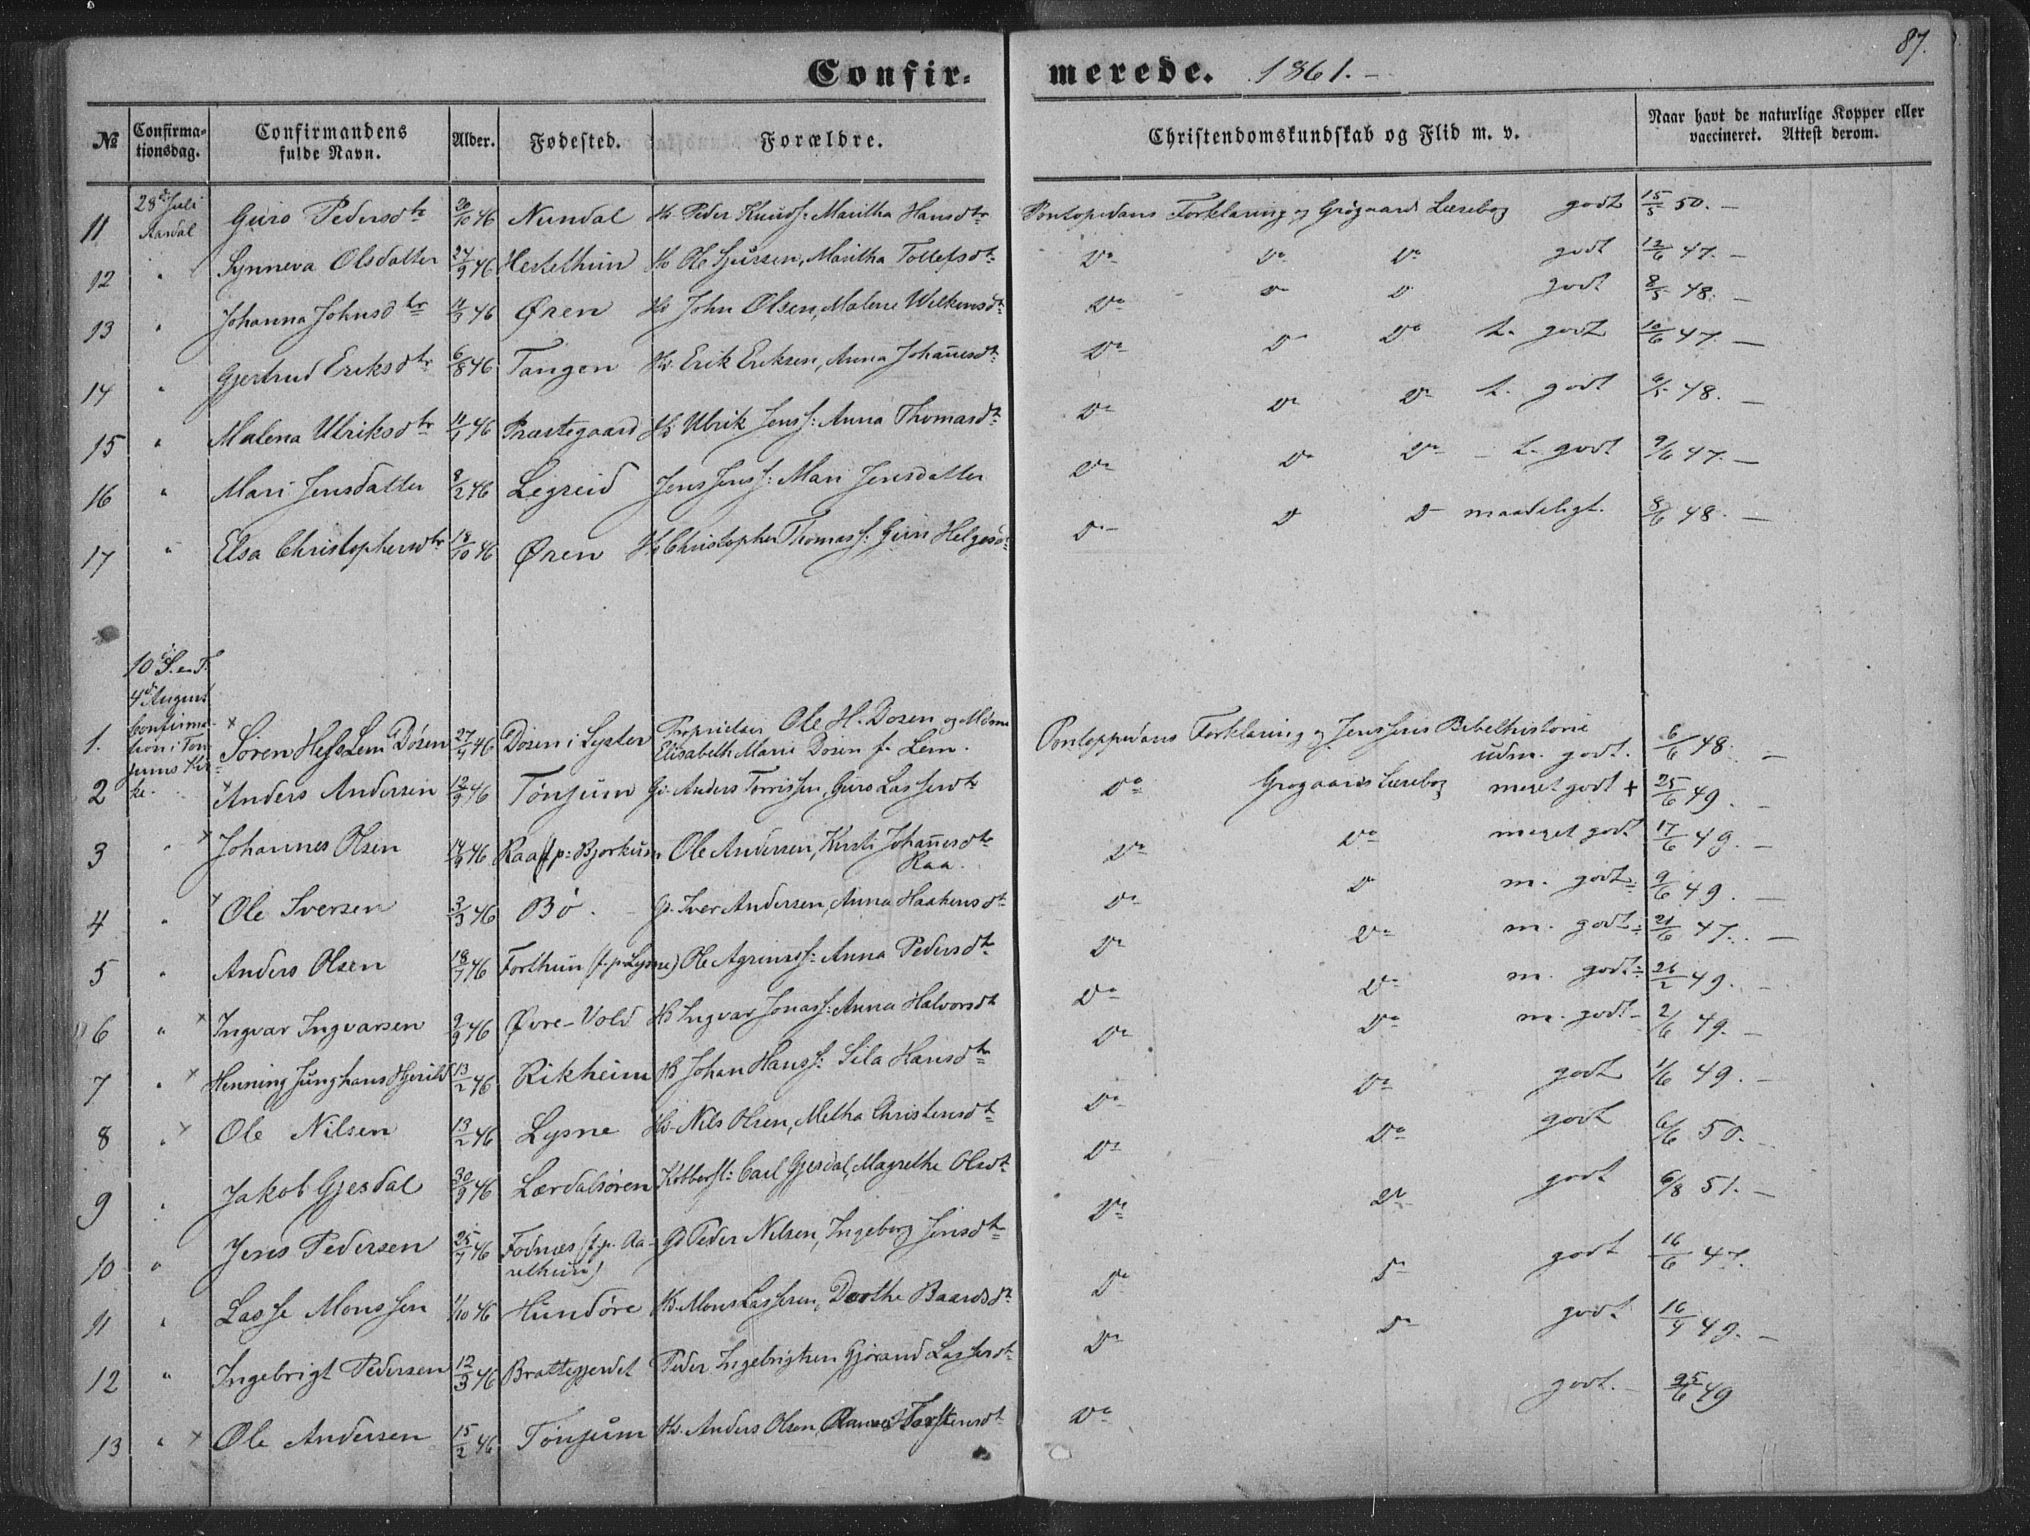 87.
Confirmerede. 1861.
№ Confirmationsdag. Confirmandens fulde Navn. Alder. Fødested. Forældre. Christendomskundskab og Flid m. v. Naar havt de naturlige Kopper eller vaccineret. Attest derom.
28d Juli Aardal
11 Guro Pedersdtr 20/10 46 Nundal Hs Peder Knuds: Maritha Hansdtr Pontopidans Forklaring og Grøgaards Læsebog godt 15/5 50. –
12 " Synneva Olsdatter 27/9 46 Hestethun Hs Ole Sjursen, Maritha Tollefsdtr Do Do Do godt 12/6 47. –
13 " Johanna Johnsdtr 46 Øren Hs John Olsen, Malene Wilkensdtr Do D D godt 8/5 48. –
14 " Gjertrud Eriksdtr 6/8 46 Tangen Hs. Erik Eriksen, Anna Johannesdtr Do Do Do t. godt 10/6 47. –
15 " Malena Ulriksdtr 46 Præstegaard Hs Ulrik Jens: Anna Thomasdtr Do Do Do t. godt 48. –
16 " Mari Jensdatter 8/2 46 Legreid Jens Jens: Mari Jensdatter Do Do Do t. godt 9/6 47. –
17 " Elsa Christophersdtr 18/10 46 Øren Hs Christopher Thomas: Guri Helgesdtr D D D maadeligt. 8/6 48. –
10 S. e. T.
4d August
Confirmation i Tønjums Kirke.
1. × Søren Hess Lem Døsen 27/9 46 Døsen i Lyster Proprietær Ole H. Dosen og Mdme Elisabeth Marie Dosen f. Lem. Pontoppedans Forklaring og Jenssens Bibelhistorie udm. godt. 6/6 48. –
2 × Anders Andersen 12/9 46 Tønjum Gs. Anders Torrissen, Guro Lassesdtr Do Grøgaards Læsebog meget godt + 25/6 49. –
3 " × Johannes Olsen 14/9 46 Raa (f p: Bjorkum Ole Andersen, Kirsti Johannesdtr Raa. Do Do meget godt 17/6 49. –
4 " Ole Iversen 3/3 46 Bø. Gs. Iver Andersen, Anna Haakensdtr Do D m. godt 9/6 49. –
5 " Anders Olsen 18/7 46 Forthun (f. p. Lysne) Ole Agrims: Anna Pedersdtr Do Do m. godt 21/6 47. –
6 " × Ingvar Ingvarsen 9/9 46 Øvre-Vold Hs Ingvar Jonas: Anna Halvorsdtr Do Do m. godt 26/2 49. –
7 " × Henning Junghans Hjerild 13/2 46 Rikheim Hs Johan Hans: Sila Hansdtr Do Do m. godt 2/6 49. –
8 " × Ole Nilsen 13/2 46 Lysne Hs. Nils Olsen, Metha Christensdtr Do Do godt 1/6 49. –
9 Jakob Gjesdal 30/9 46 Lærdalsøren Kobberst: Carl Gjesdal, Magrethe Olsdtr Do Do godt 6/6 50. –
10 " Jens Pedersen 25/7 46 Fodnæs (f.p. Aarethun) Gs Peder Nilsen, Ingeborg Jensdtr Do Do godt 6/8 51. –
11 " Lasse Monssen 1/10 46 Hundøre Hs. Mons Lassesen, Dorthe Baardsdtr Do D godt 16/6 47.
12 " Ingebrigt Pedersen 12/3 46 Brattegjerdet Peder Ingebrigtsen Gjørand Lassesdtr Do D godt 16/9 49. –
13 " × Ole Andersen 15/2 46 Tønjum Hs. Anders Olsen, Torstensdtr Do godt. 25/6 49